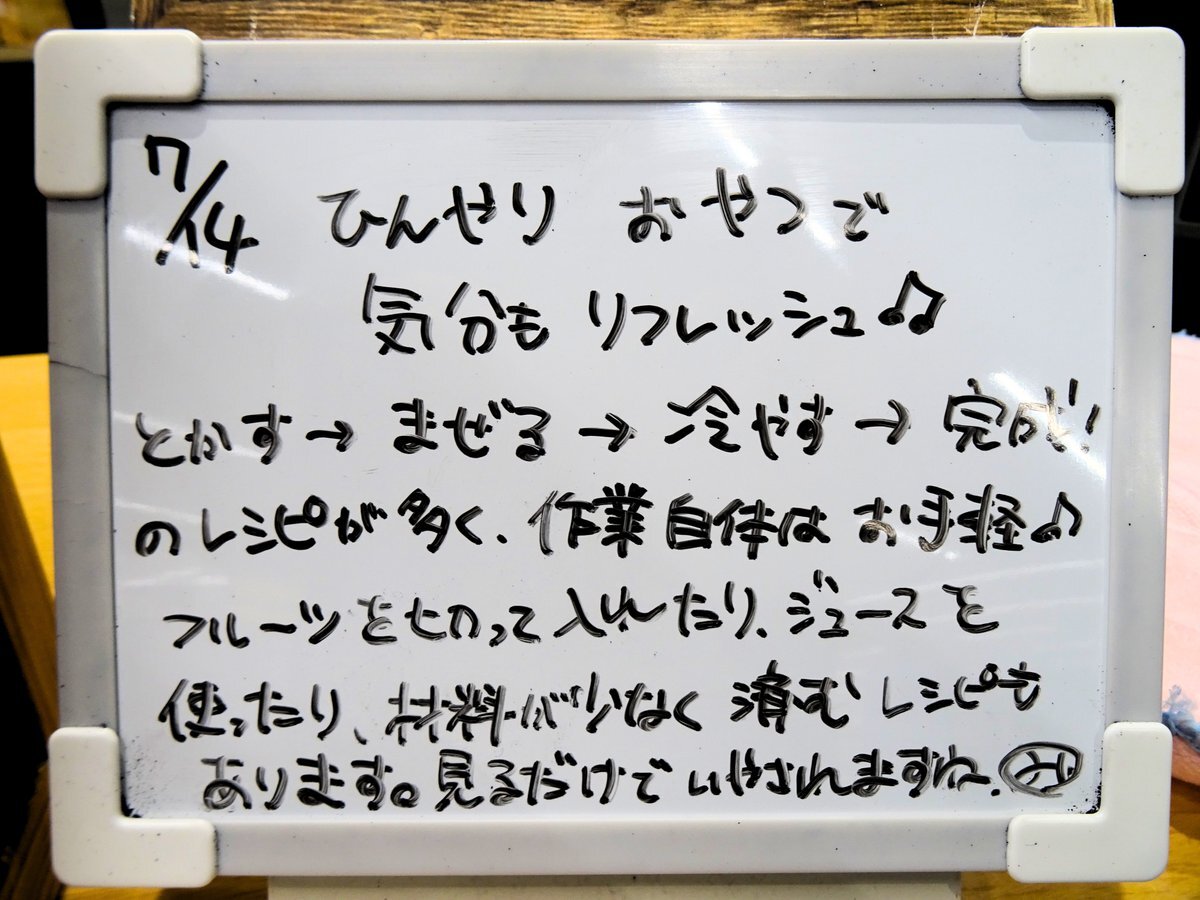 7/14 ひんやり おやつで
気分も リフレッシュ♫
とかす→まぜる→冷やす→完成!
のレシピが多く、作業自体はお手軽♪
フルーツを切って入れたり、ジュースを
使ったり、材料が少なく済むレシピも
あります。見るだけでいやされますね。